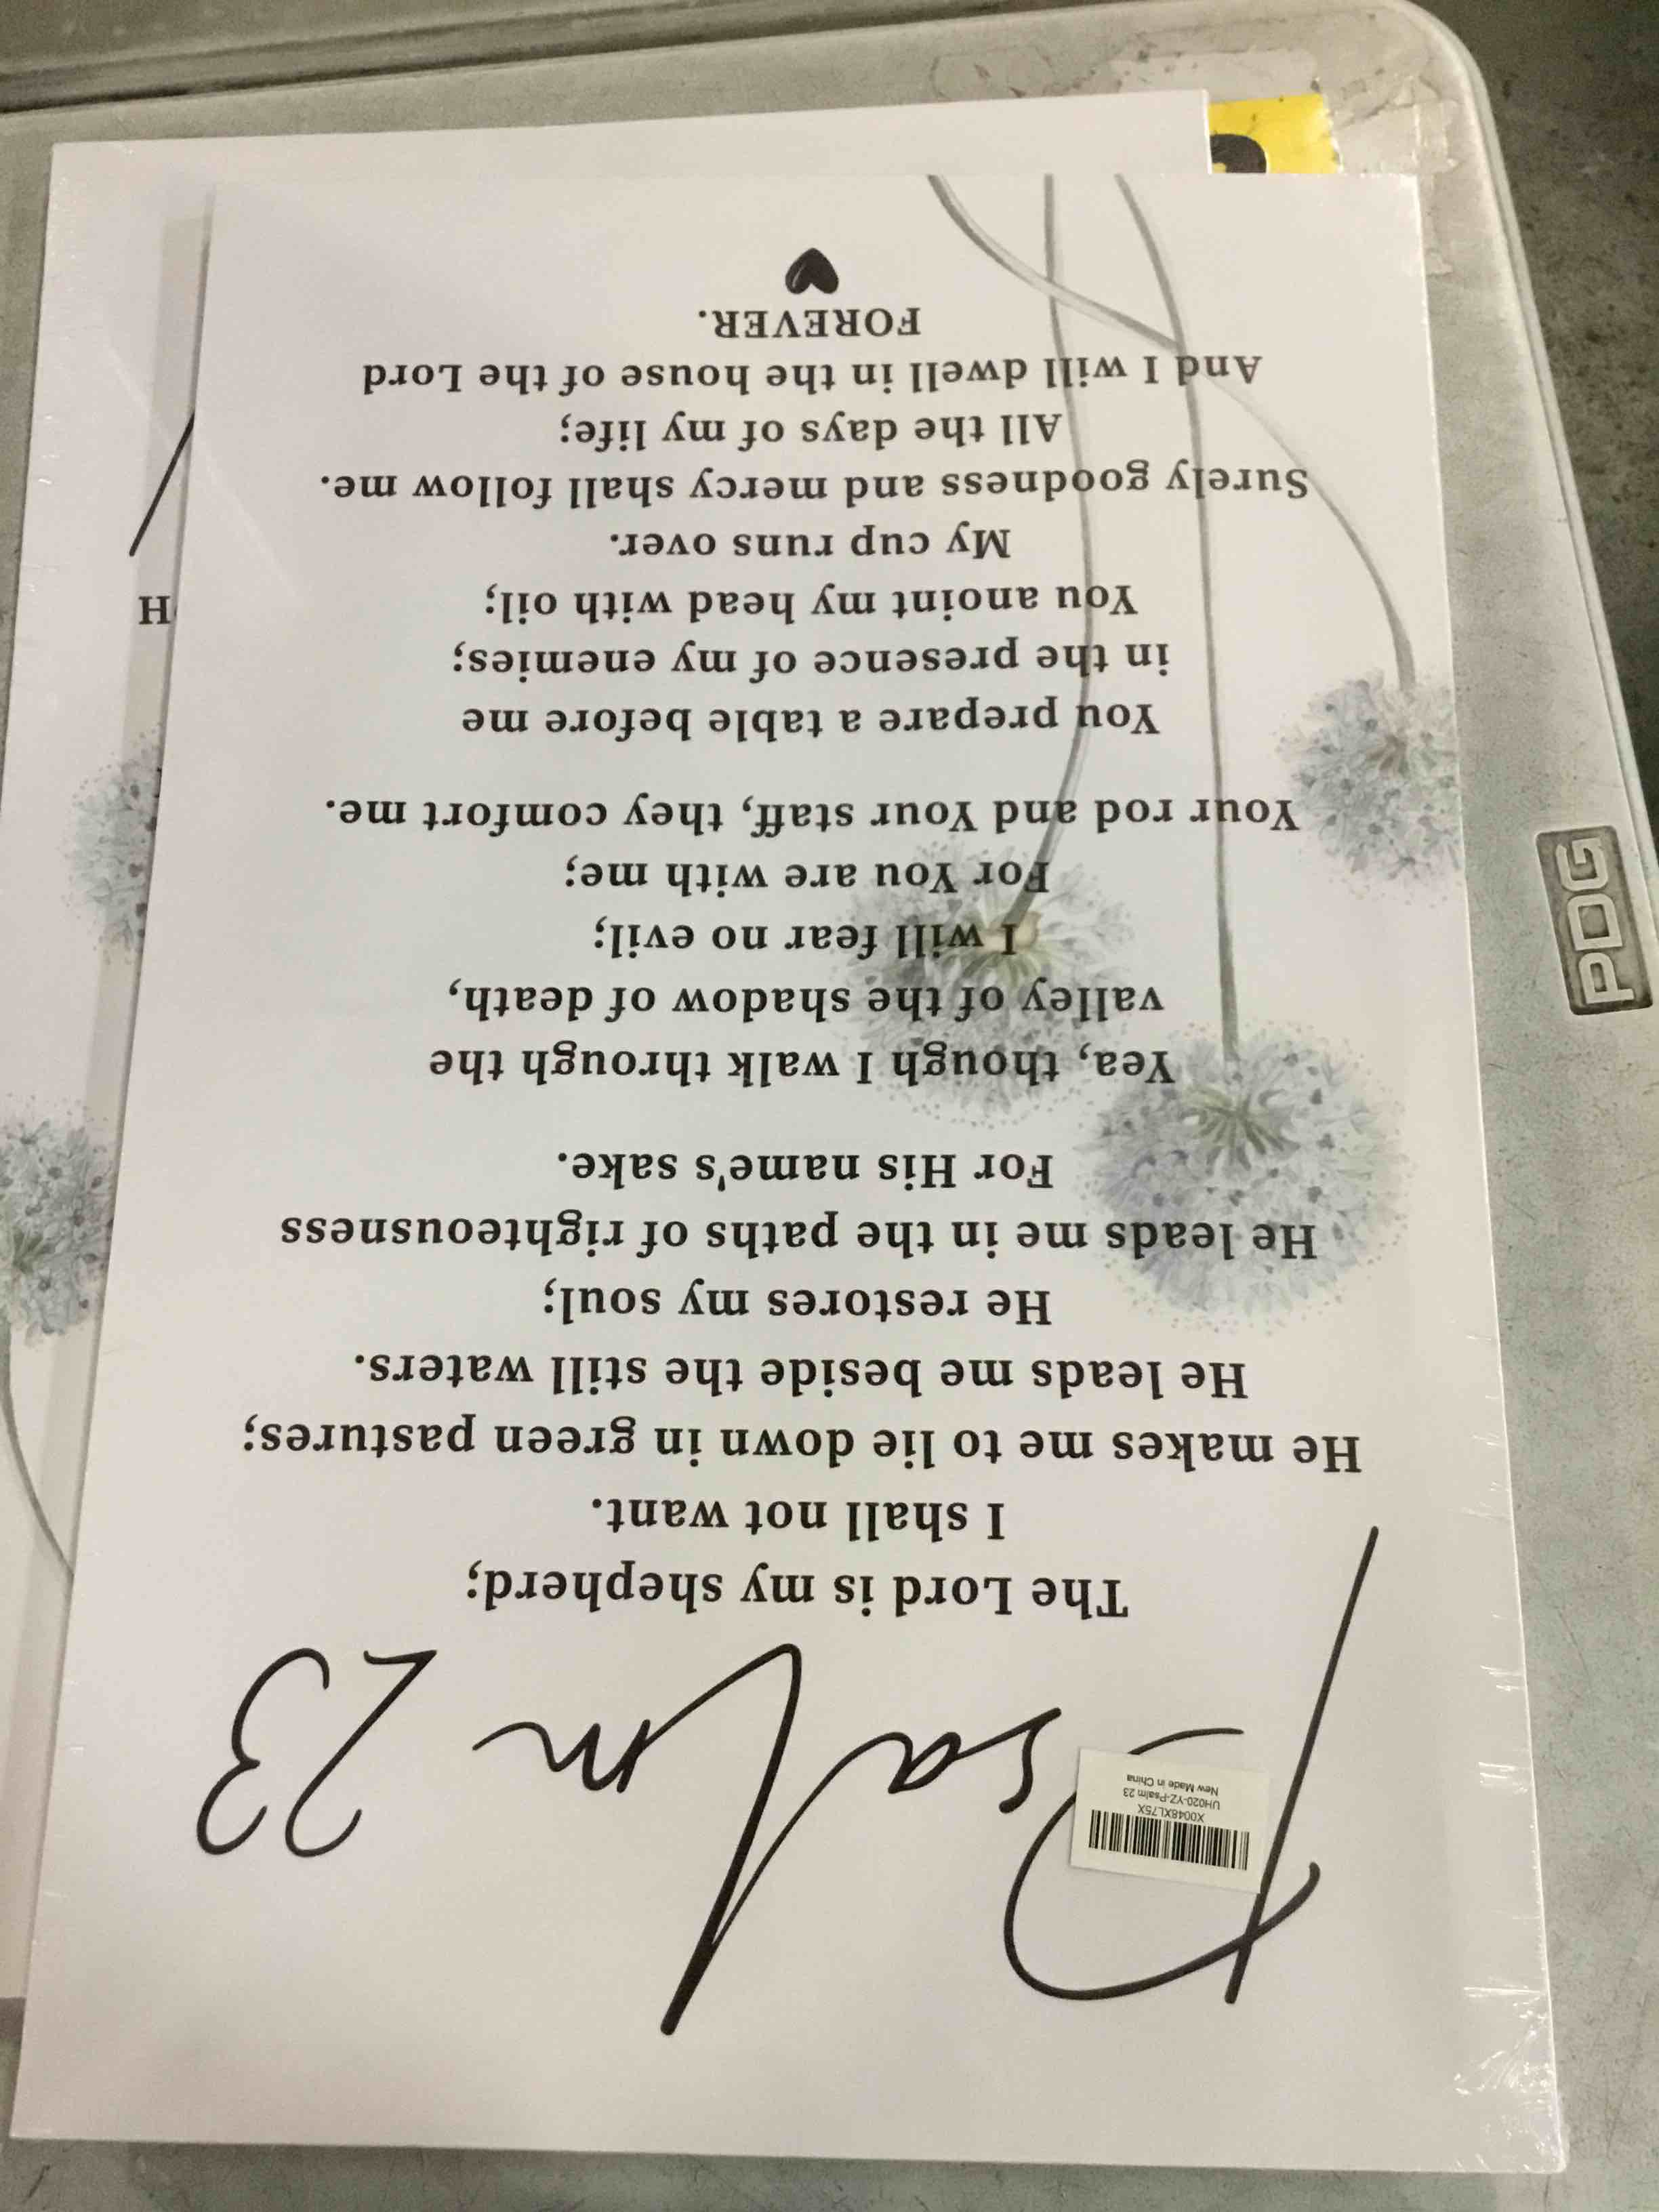 Psalm 23
X0048XL75X
UH020-YZ-Psalm 23
New Made in China
The Lord is my shepherd;
I shall not want.
He makes me to lie down in green pastures;
He leads me beside the still waters.
He restores my soul;
He leads me in the paths of righteousness
For His name's sake.
Yea, though I walk through the
valley of the shadow of death,
I will fear no evil;
For You are with me;
Your rod and Your staff, they comfort me.
You prepare a table before me
in the presence of my enemies;
You anoint my head with oil;
My cup runs over.
Surely goodness and mercy shall follow me.
All the days of my life;
And I will dwell in the house of the Lord
FOREVER.
H
PDG